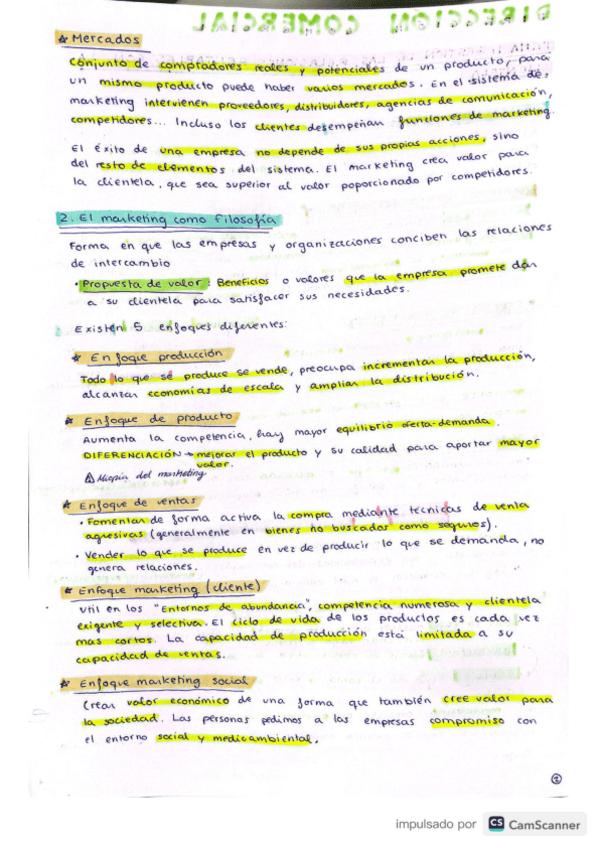 DIRECCIÓN COMERCIAL
★ Mercados
Conjunto de compradores reales y potenciales de un producto, para
un mismo producto puede haber varios mercados. En el sistema de
marketing intervienen proveedores, distribuidores, agencias de comunicación,
competidores... Incluso los clientes desempeñan funciones de marketing.
El éxito de una empresa no depende de sus propias acciones, sino
del resto de elementos del sistema. El marketing crea valor para
la clientela, que sea superior al valor poporcionado por competidores.
2. El marketing como filosofía
Forma en que las empresas y organizaciones conciben las relaciones
de intercambio
• Propuesta de valor: Beneficios o valores que la empresa promete dar
a su clientela para satisfacer sus necesidades.
Existen 5 enfoques diferentes:
★ Enfoque producción
Todo lo que se produce se vende, preocupa incrementar la producción,
alcanzar economías de escala y ampliar la distribución.
★ Enfoque de producto
Aumenta la competencia, hay mayor equilibrio oferta-demanda.
DIFERENCIACIÓN → mejorar el producto y su calidad para aportar mayor
valor.
⚠ Miopía del marketing
★ Enfoque de ventas
• Fomentar de forma activa la compra mediante técnicas de venta
agresivas (generalmente en bienes no buscados como seguros).
• Vender lo que se produce en vez de producir lo que se demanda, no
genera relaciones.
★ Enfoque marketing (cliente)
Util en los "Entornos de abundancia", competencia numerosa y clientela
exigente y selectiva. El ciclo de vida de los productos es cada vez
mas cortos. La capacidad de producción está limitada a su
capacidad de ventas.
★ Enfoque marketing social
Crear valor económico de una forma que también cree valor para
la sociedad. Las personas pedimos a las empresas compromiso con
el entorno social y medioambiental.
1
impulsado por CS CamScanner